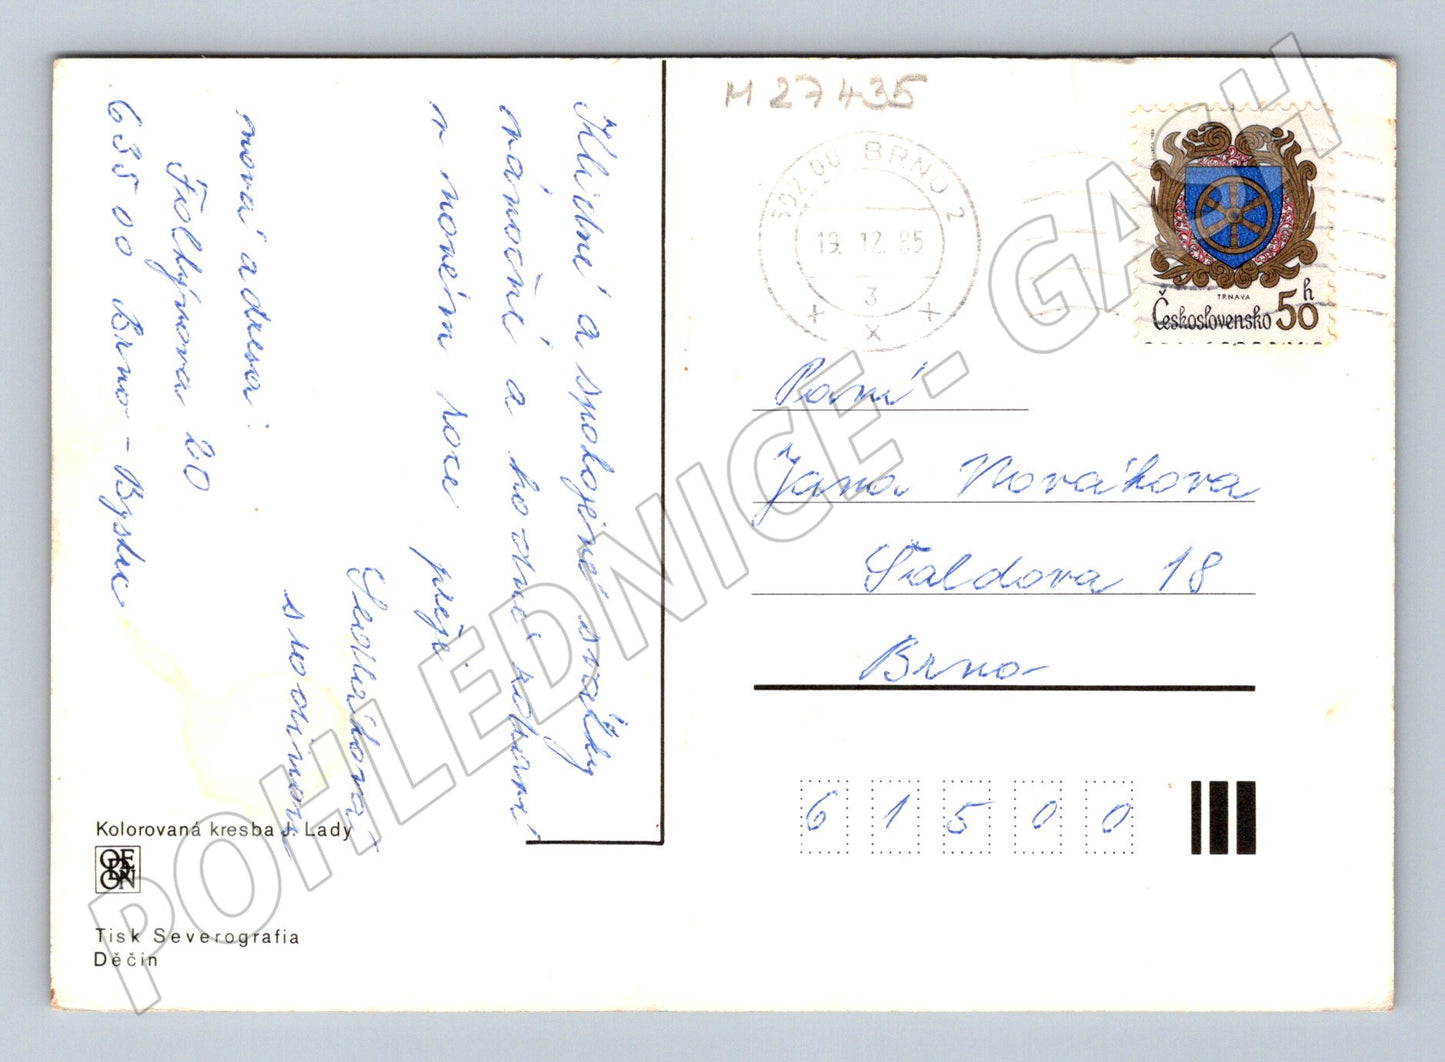 Klidné a spokojené svátky
vánoční a hodně pohody
v novém roce přeje
Sedláková
s rodinou
nová adresa:
Foltýnova 20
635 00 Brno - Bystrc
Kolorovaná kresba J. Lady
ODEON
Tisk Severografia
Děčín
M 27435
602 00 BRNO 2
19. 12. 85
3
TRNAVA
Československo 50 h
Paní
Jana Nováková
Šaldova 18
Brno
6 1 5 0 0
POHLEDNICE - GACH